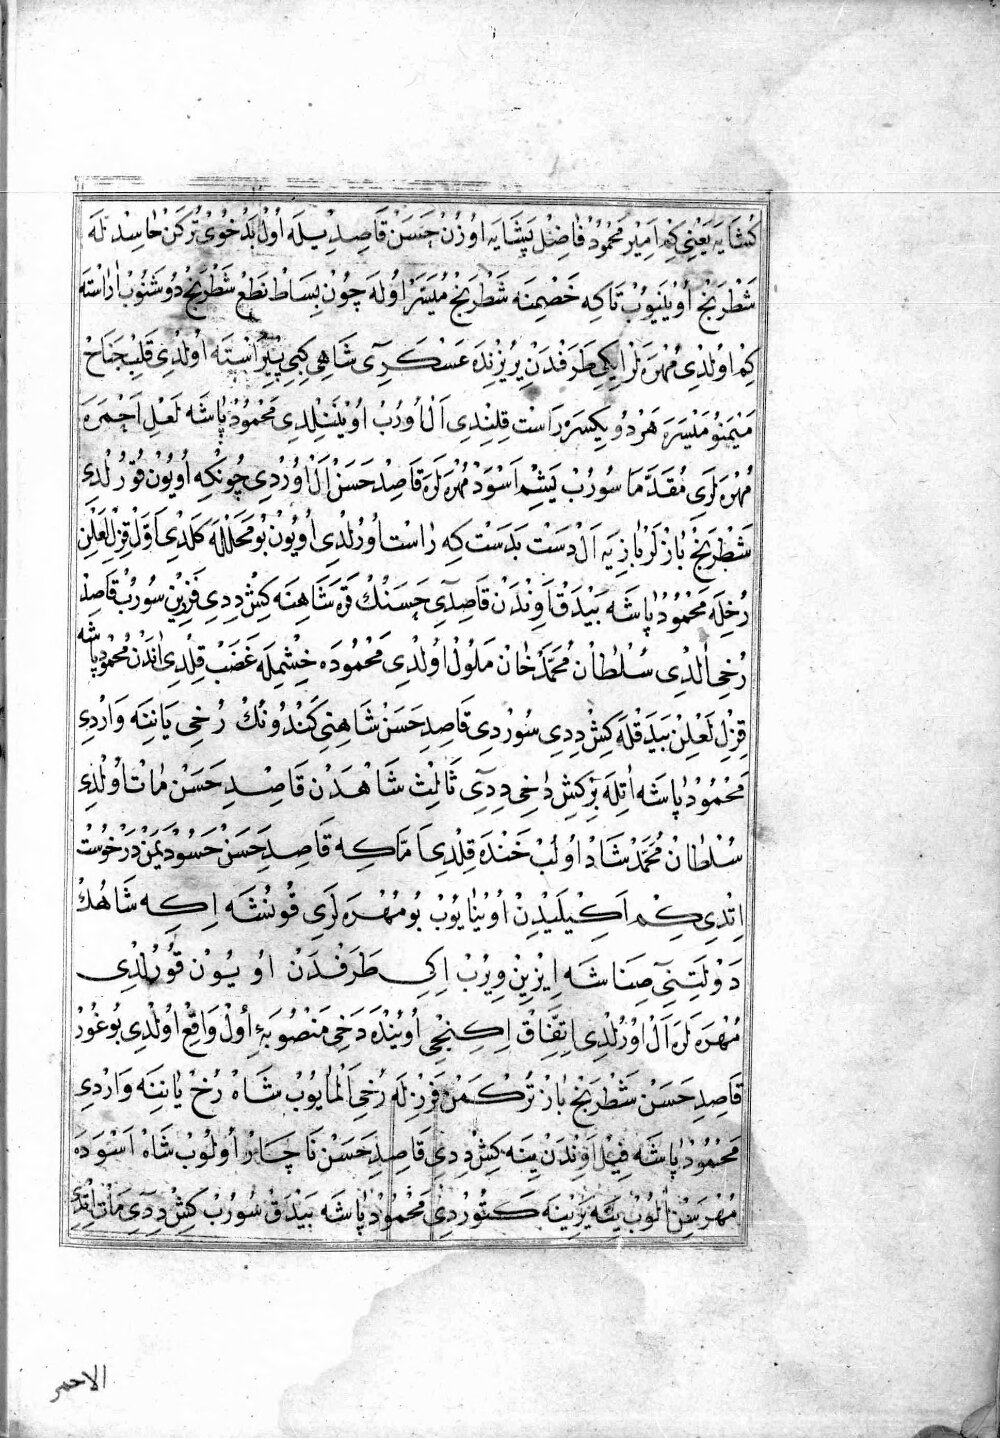 كُشَايَه يَعْنِي كِمْ اَمِيرْ مَحْمُودْ فَاضِلْ پَشَايَه اُوزُنْ حَسَنْ قَاصِدِيلَه اُولْ بَدْخُويْ تُركَنْ حَاسِدْلَه
شَطْرَنْجْ اُوينَيُوبْ تَاكِه خَصْمِنَه شَطْرَنْجْ مُيَسَّرْ اُولَه چُونْ بِسَاطْ نَطْعِ شَطْرَنْجْ دُوشَنُوبْ اٰرَاسْتَه
كِمْ اُولْدِي مُهْرَه لَرْ اِيكِي طَرَفْدَنْ يِرْيِرِنْدَه عَسْكَرِي شَاهِي كِبِي پِيرَاسْتَه اُولْدِي قَلْبِ جَنَاحْ
مَيْمَنَو مَيْسَرَه هَرْدُو يِكْسَرَه رَاسْتْ قِلِنْدِي اَلْ اُورُبْ اُوينَنِلْدِي مَحْمُودْ پَاشَه لَعْلِ اَحْمَرَه
مُهْرَه لَرِي مُقَدَّمَا سُورُبْ يَشِمِ اَسْوَدْ مُهْرَه لَرَه قَاصِدْ حَسَنْ اَلْ اُوُرْدِي چُونْكِه اُويُونْ قُورُلْدِي
شَطْرَنْجْ بَازْلَرْ بَازِيَه اَلْ دَسْتْ بَدَسْتْ كِه رَاسْتْ اُورُلْدِي اُويُونْ بُو مَحَلَّه كَلْدِي اَوَّلْ قِزِلْ لَعْلِنْ
رُخِلَه مَحْمُودْ پَاشَه بَيْدَقْ اُوكِنْدَنْ قَاصِدِي حَسَنْكْ قَرَه شَاهِنَه كِشْ دِدِي فَرْزِينْ سُورُبْ قَاصِدْ
رُخِي اٰلْدِي سُلْطَانْ مُحَمَّدْ خَانْ مَلُولْ اُولْدِي مَحْمُودَه خِشْمِلَه غَضَبْ قِلْدِي اٰنْدَنْ مَحْمُودْ پَاشَه
قِزِلْ لَعْلِنْ بَيْدَقْلَه كِشْ دِدِي سُورْدِي قَاصِدِ حَسَنْ شَاهِنِي كَنْدُونُكْ رُخِي يَانِنَه وَارْدِي
مَحْمُودْ پَاشَه اٰتِلَه بِرْ كِشْ دَاخِي دِدِي ثَالِثْ شَاهْدَنْ قَاصِدِ حَسَنْ مَاتْ اُولْدِي
سُلْطَانْ مُحَمَّدْ شَادْ اُولُبْ خَنْدَه قِلْدِي اَمَّا كِه قَاصِدِ حَسَنْ حَسُودْ يَمَنْ دَرْخُوسْتْ
اِتْدِي كِمْ اَكِيلَيِدِنْ اُويْنَايُوبْ بُو مُهْرَه لَرِي قُونُشَه اِكِه شَاهُكْ
دَوْلَتِنِي صِنَاشَه اِيزِينْ وِيرُبْ اِكِي طَرَفْدَنْ اُويُونْ قُورُلْدِي
مُهْرَه لَرَه اَلْ اُوُرُلْدِي اِتِّفَاقْ اِكِنْجِي اُويُنْدَه دَخِي مَنْصُوبَهٔ اُولْ وَاقِعْ اُولْدِي بُو غُورْ
قَاصِدِ حَسَنْ شَطْرَنْجْ بَازْ تُرْكَمَنْ فَرْزِلَه رُخِي اَلْمَايُوبْ شَاهْ رُخْ يَانِنَه وَارْدِي
مَحْمُودْ پَاشَه فِيلْ اُوكِنْدَنْ يِنَه كِشْ دِدِي قَاصِدِ حَسَنْ نَاچَارْ اُولُوبْ شَاهْ اَسْوَدَه
مُهْرَسِنْ اَلُوبْ يِنَه يِرِينَه كَتُورْدِي مَحْمُودْ پَاشَه بَيْدَقْ سُورُبْ كِشْ دِدِي مَاتْ اِتْدِي
الاحمر